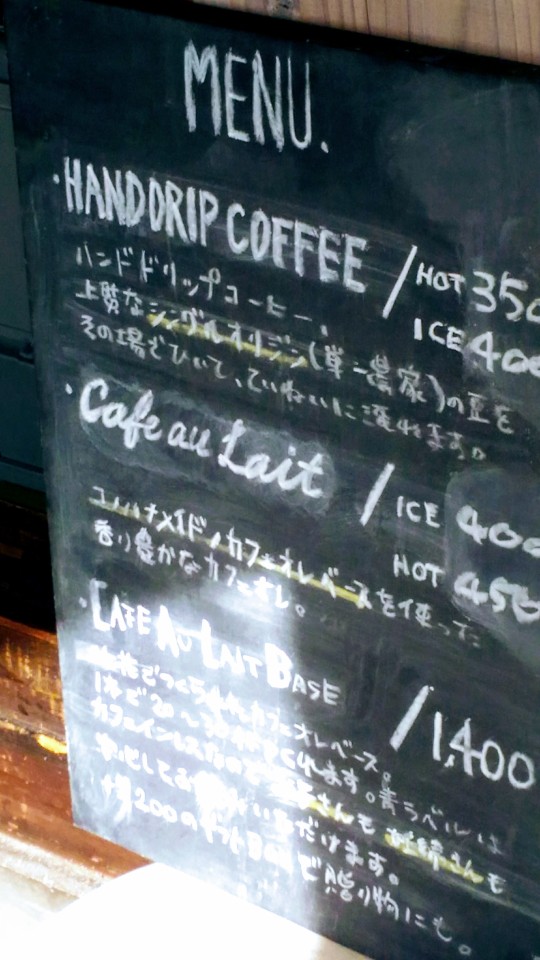 MENU.
・HAND DRIP COFFEE / HOT 350
ICE 400
ハンドドリップコーヒー。
上質なシングルオリジン(単一農家)の豆を
その場でひいて、ていねいに淹れます。
・Cafe au Lait / ICE 400
HOT 450
コノハナメイドノカフェオレベースを使った
香り豊かなカフェオレ。
・CAFE AU LAIT BASE /1,400
でつくられたカフェオレベース。
1本で20〜
れます。青ラベルは
カフェインレスなので
さんも妊婦さんも
してお いただけます。
+¥200のギフトBOXで贈り物にも。